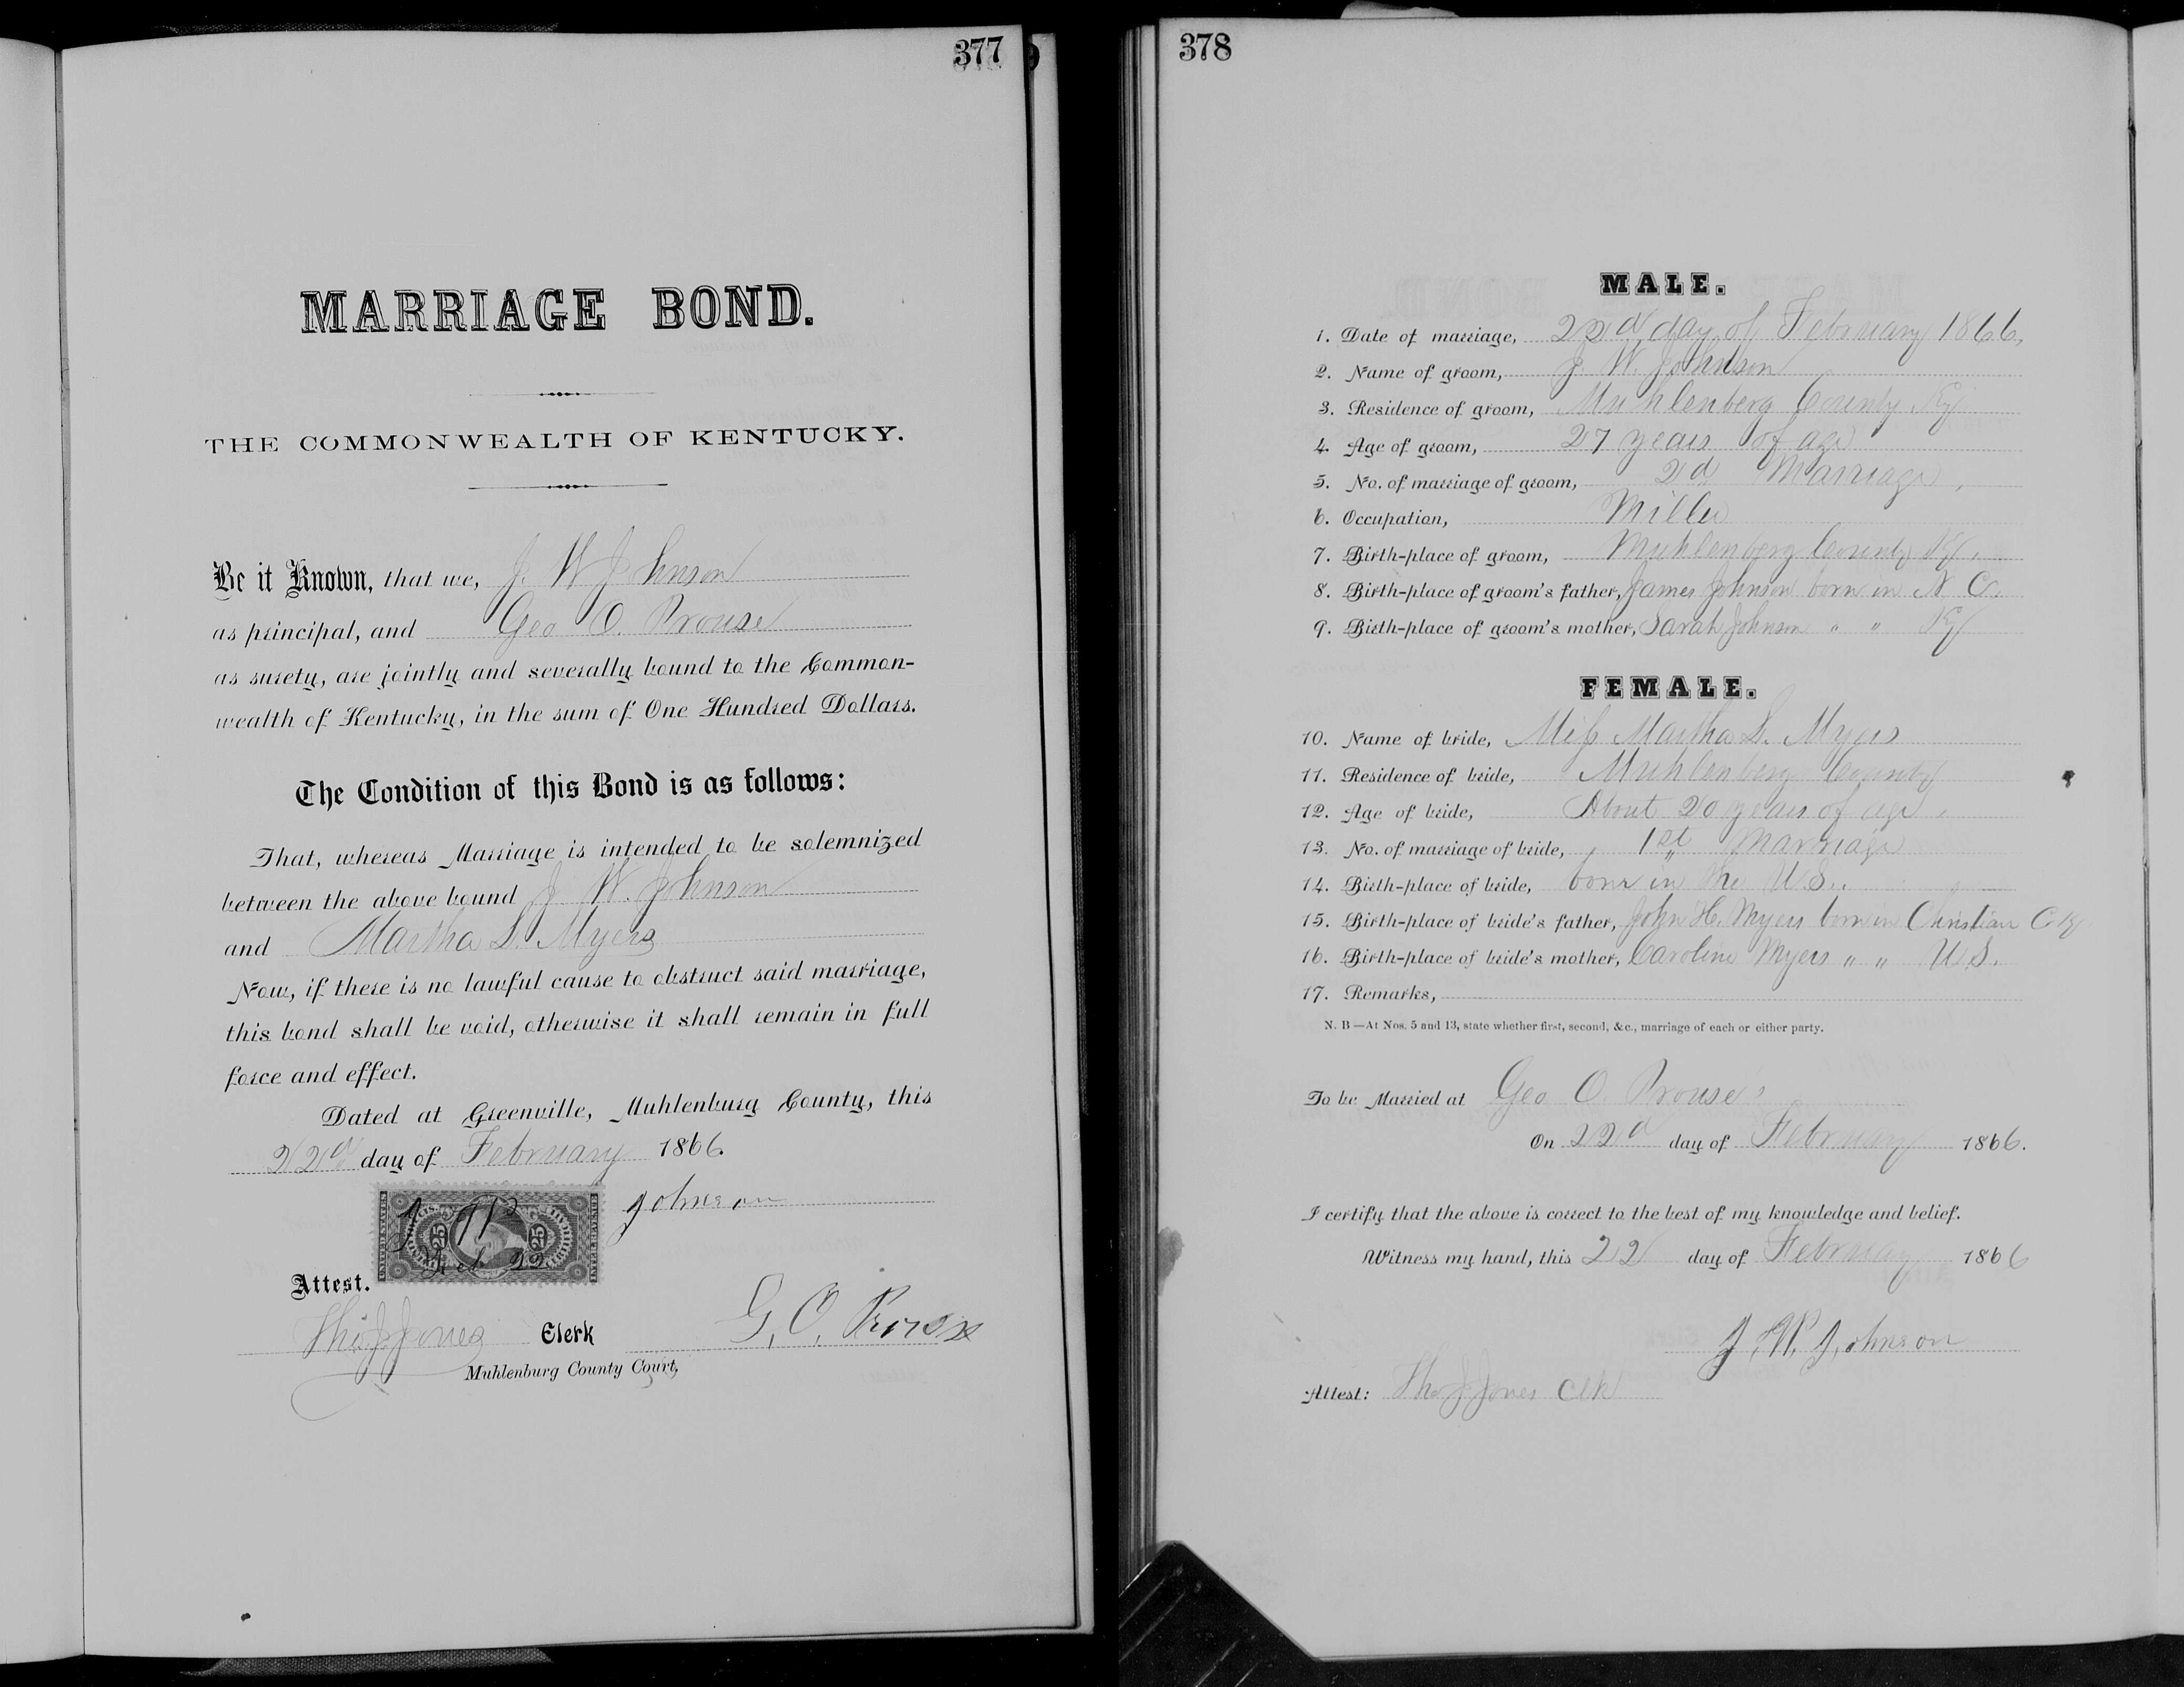 377
MARRIAGE BOND.
THE COMMONWEALTH OF KENTUCKY.
Be it Known, that we, J. W Johnson
as principal, and Geo O. Prouse
as surety, are jointly and severally bound to the Common-
wealth of Kentucky, in the sum of One Hundred Dollars.
The Condition of this Bond is as follows:
That, whereas Marriage is intended to be solemnized
between the above bound J W. Johnson
and Martha S. Myers
Now, if there is no lawful cause to obstruct said marriage,
this bond shall be void, otherwise it shall remain in full
force and effect.
Dated at Greenville, Muhlenburg County, this
22d day of February 1866.
J W Johnson
UNITED STATES 25 25 INTER. REVENUE
Feb 22
Attest.
Tho. J. Jones Clerk G. O. Prouse
Muhlenburg County Court,
378
MALE.
1. Date of marriage, 22d day of February 1866,
2. Name of groom, J. W. Johnson
3. Residence of groom, Muhlenberg County Ky
4. Age of groom, 27 years of age
5. No. of marriage of groom, 2d Marriage,
6. Occupation, Miller
7. Birth-place of groom, Muhlenberg County Ky.
8. Birth-place of groom's father, James Johnson born in N C.
9. Birth-place of groom's mother, Sarah Johnson " " Ky
FEMALE.
10. Name of bride, Miss Martha S. Myers
11. Residence of bride, Muhlenberg County
12. Age of bride, About 20 years of age.
13. No. of marriage of bride, 1st Marriage
14. Birth-place of bride, born in the U S.
15. Birth-place of bride's father, John H. Myers born in Christian C Ky
16. Birth-place of bride's mother, Caroline Myers " " U S.
17. Remarks,
N. B—At Nos. 5 and 13, state whether first, second, &c., marriage of each or either party.
To be Married at Geo O Prouse's
On 22d day of February 1866.
I certify that the above is correct to the best of my knowledge and belief.
Witness my hand, this 22 day of February 1866
J. W. Johnson
Attest: Tho J. Jones Clk